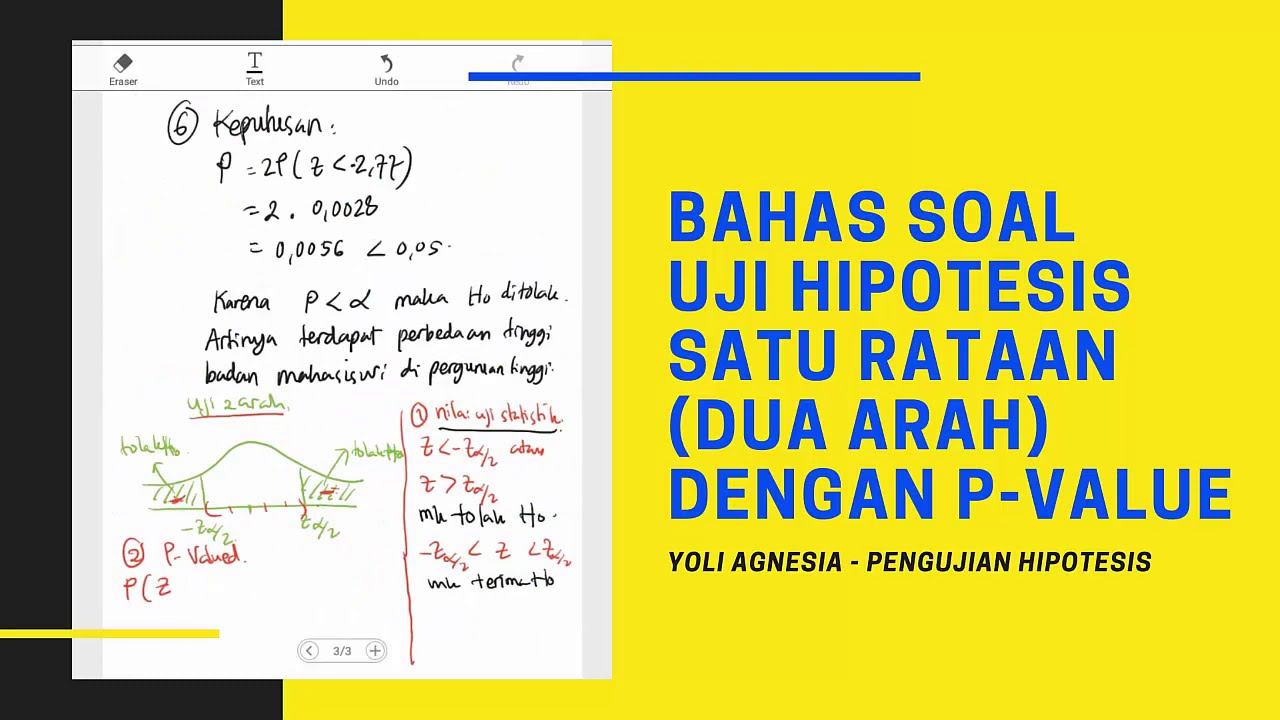 Eraser
Text
Undo
Redo
6 Keputusan:
P = 2P(z<-2,77)
= 2 . 0,0028
= 0,0056 < 0,05.
Karena P < α maka Ho ditolak.
Artinya terdapat perbedaan tinggi
badan mahasiswi di perguruan tinggi.
uji 2 arah.
tolak Ho
tolak Ho
-zα/2
zα/2
2 P-Valued.
P(Z
1 nilai uji statistik
z < -zα/2 atau
z > zα/2
mk tolak Ho.
-zα/2 < z < zα/2
mk terima Ho
3/3
BAHAS SOAL
UJI HIPOTESIS
SATU RATAAN
(DUA ARAH)
DENGAN P-VALUE
YOLI AGNESIA - PENGUJIAN HIPOTESIS